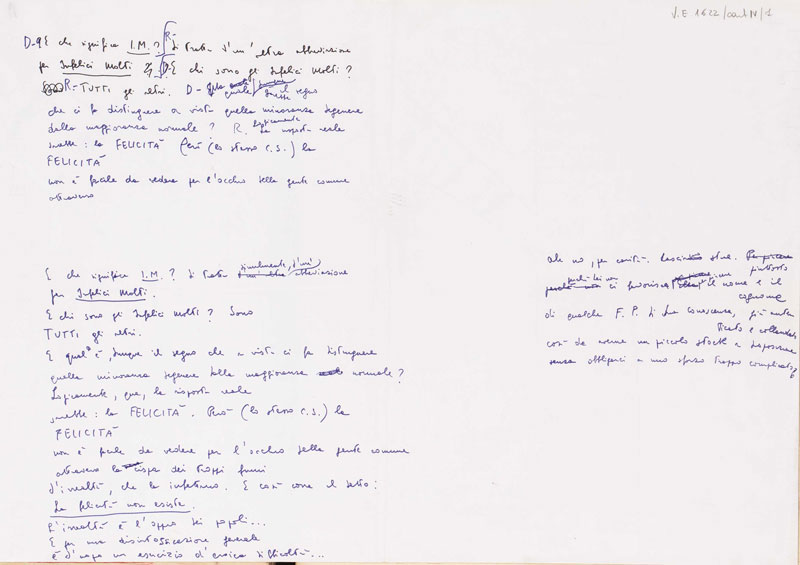 V.E 1622/cart IV/1
D-E che significa I.M.? R- Si tratta d'un'altra abbreviazione
per Infelici Molti D-E chi sono gli Infelici Molti?
R-TUTTI gli altri. D- quale il segno
che ci fa distinguere a vista quella minoranza degenere
dalla maggioranza normale? R. Logicamente La risposta reale
sarebbe: la FELICITÀ Però (lo stesso c.s.) la
FELICITÀ
non è facile da vedere per l'occhio della gente comune
attraverso
E che significa I.M.? Si tratta similmente, d'un' abbreviazione
per Infelici Molti.
E chi sono gli Infelici Molti? Sono
TUTTI gli altri.
E qual è, dunque il segno che a vista ci fa distinguere
quella minoranza degenere dalla maggioranza normale?
Logicamente, qua, la risposta reale
sarebbe: la FELICITÀ. Però (lo stesso c.s.) la
FELICITÀ
non è facile da vedere per l'occhio della gente comune
attraverso la dei troppi fumi
d'irrealtà, che la infettano. E così corre il detto:
La felicità non esiste.
L'irrealtà è l'oppio dei popoli...
E per una disintossicazione generale
è d'uopo un esercizio d'eroica difficoltà...
Ah no, per carità. Lasci stare.
ci favorisca piuttosto il nome e il
cognome
di qualche F.P. di Sua conoscenza, già auten
ticato e collaudato
così da averne un piccolo stock a disposizione
senza obbligarci a uno sforzo troppo complicato?